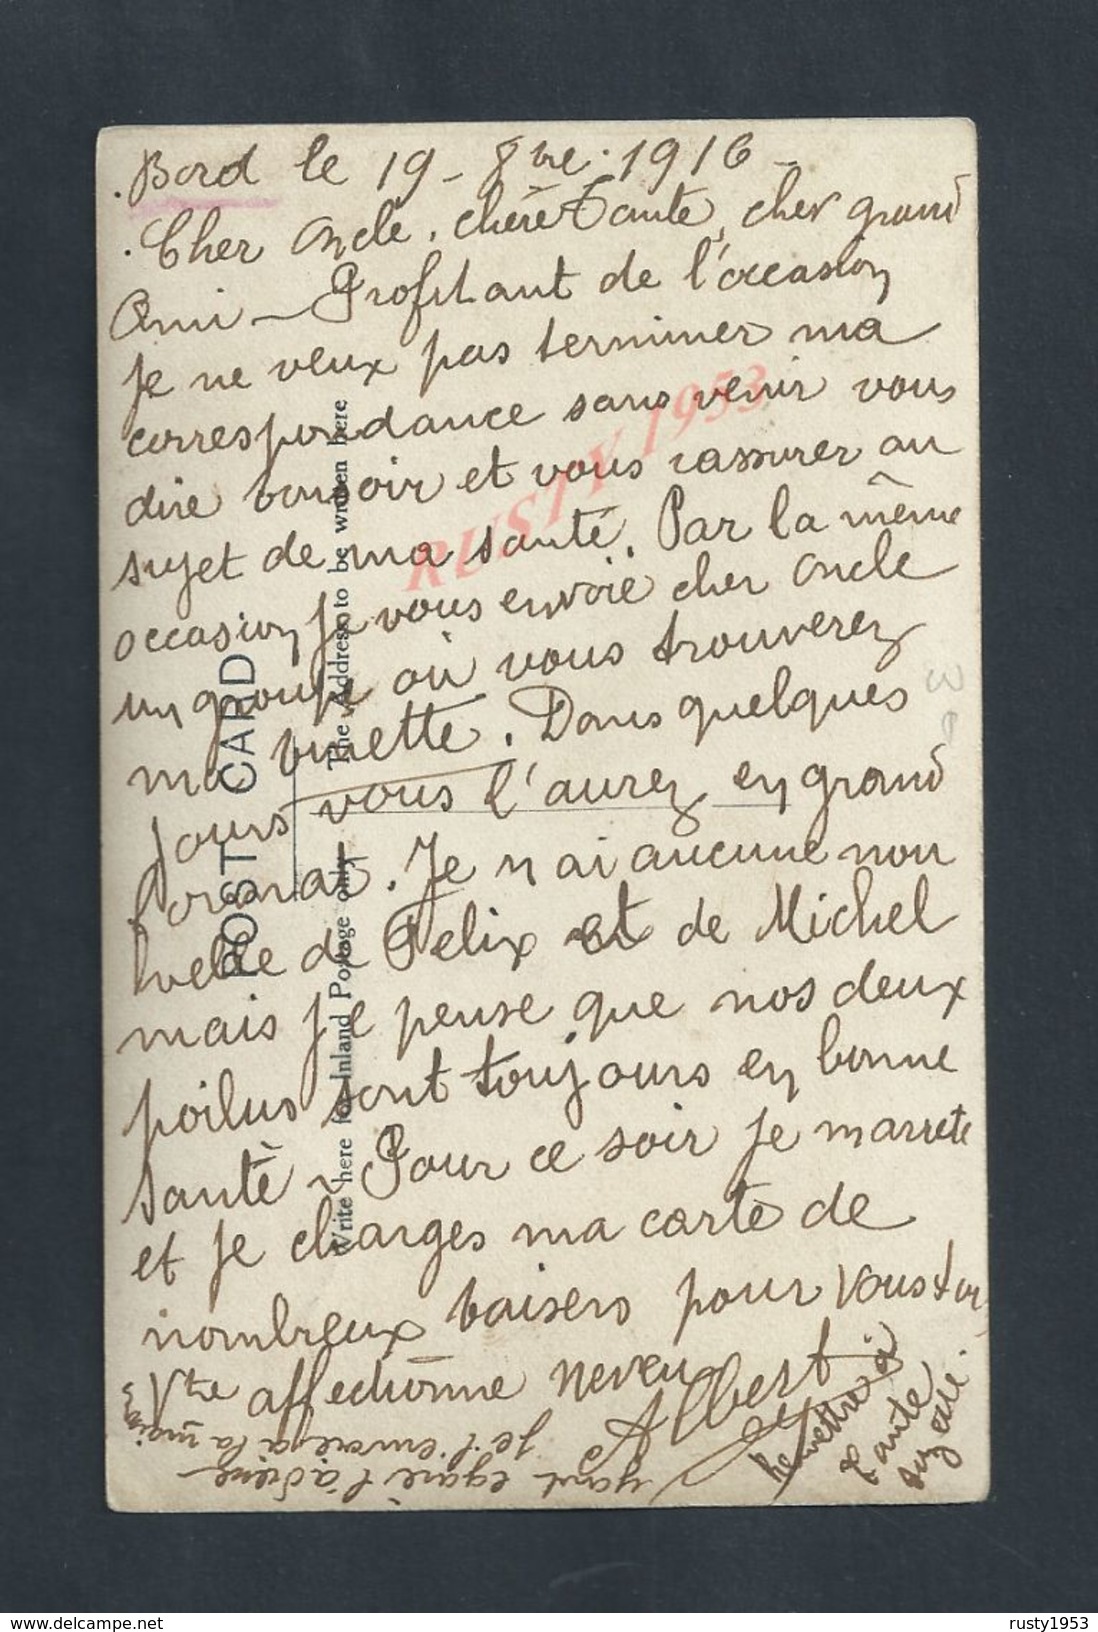 Bord le 19 - 8bre. 1916 -
Cher Oncle, chère Tante, cher grand
Ami - Profitant de l'occasion
je ne veux pas terminer ma
correspondance sans venir vous
dire bonsoir et vous rassurer au
sujet de ma santé. Par la même
occasion je vous envoie cher Oncle
un groupe où vous trouverez
ma binette. Dans quelques
jours vous l'aurez en grand
format. Je n'ai aucune nou
velle de Felix et de Michel
mais je pense que nos deux
poilus sont toujours en bonne
santè - Pour ce soir je marrete
et je charges ma carte de
nombreux baisers pour vous tous
Vtre affectionné neveu
Albert
remettre à
Tante
Suzanne
yant egaré l'adresse
je l'envoie a la maison
POST CARD
Write here for Inland Postage only
The Address to be written here
RUSTY 1953
delcampe.net
rusty1953